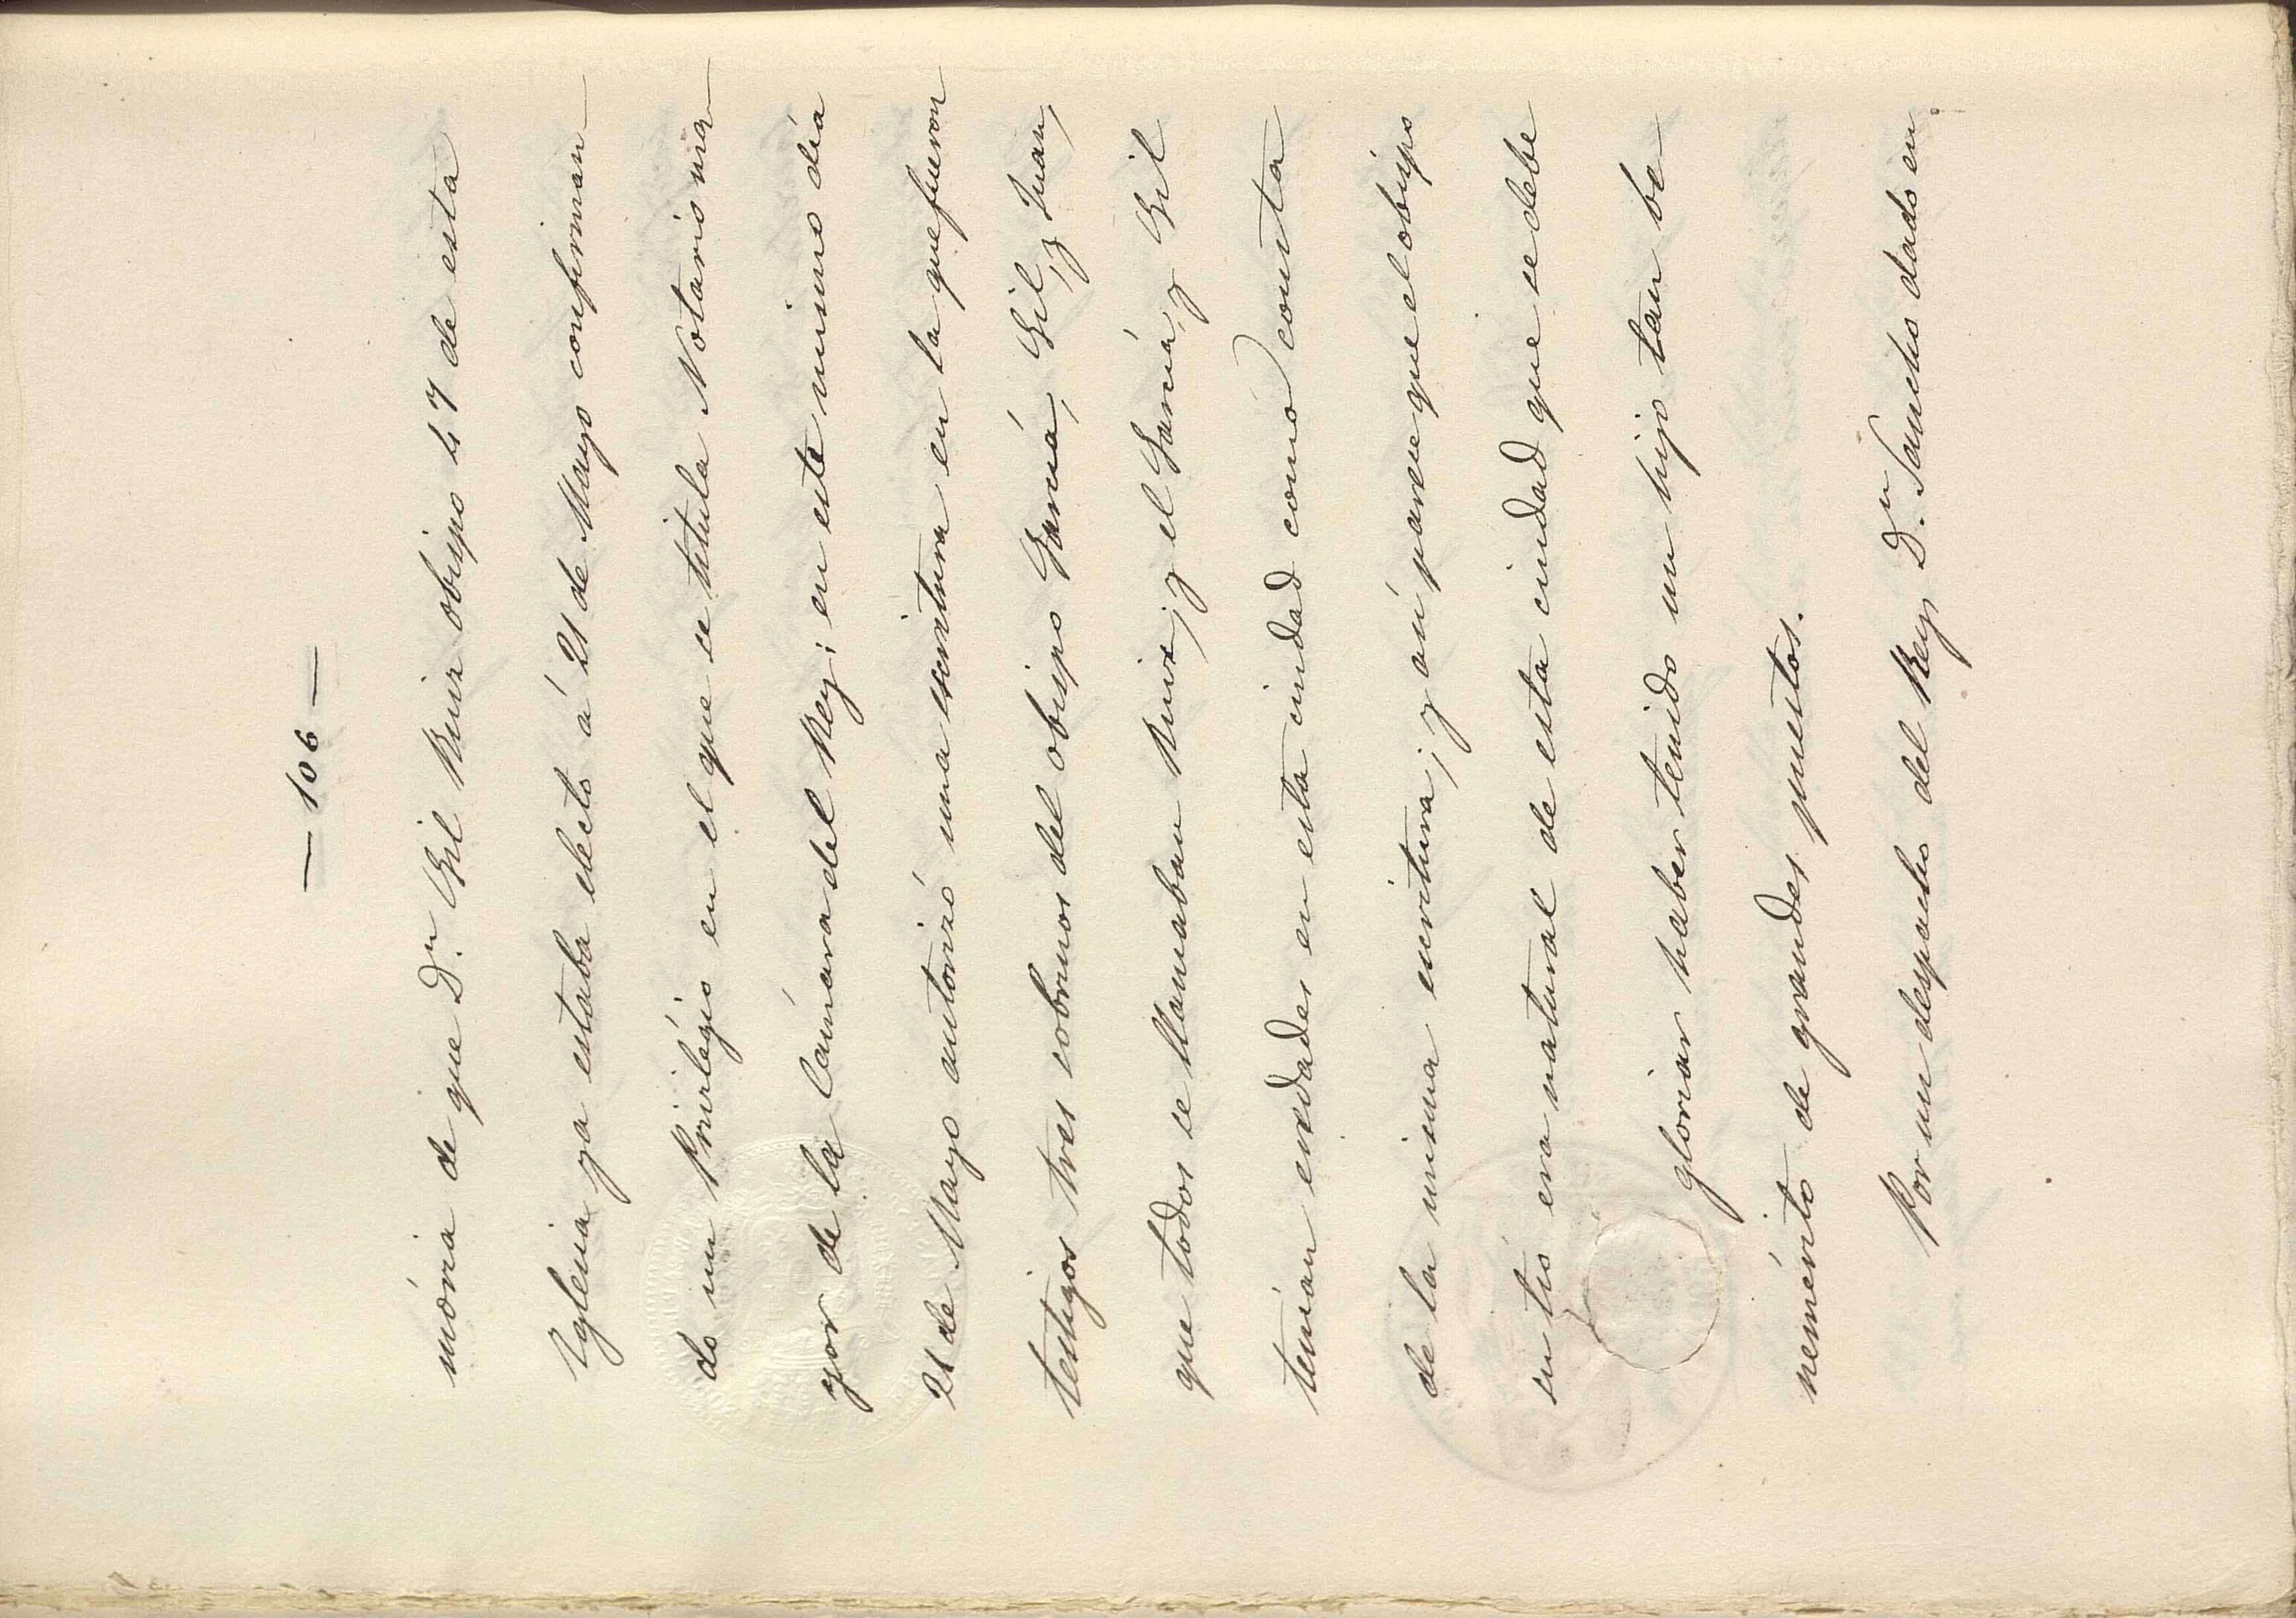 — 106 —
moria de que Dⁿ. Gil Ruiz obispo 47 de esta
Yglesia ya estaba electo á 21 de Mayo confirman
do un Privilégio en el que se titula Notario ma
yor de la Cámara del Rey; en este mismo dia
21 de Mayo autorizó una escritura en la que fueron
testigos tres sobrinos del obispo García, Gil, y Juan,
que todos se llamaban Ruiz, y el García, y Gil
tenian eredades en esta ciudad como consta
de la misma escritura; y así parece que el obispo
su tio era natural de esta ciudad que se debe
gloriar haber tenido un hijo tan be
nemérito de grandes puestos.
Por un despacho del Rey Dⁿ. Sancho dado en